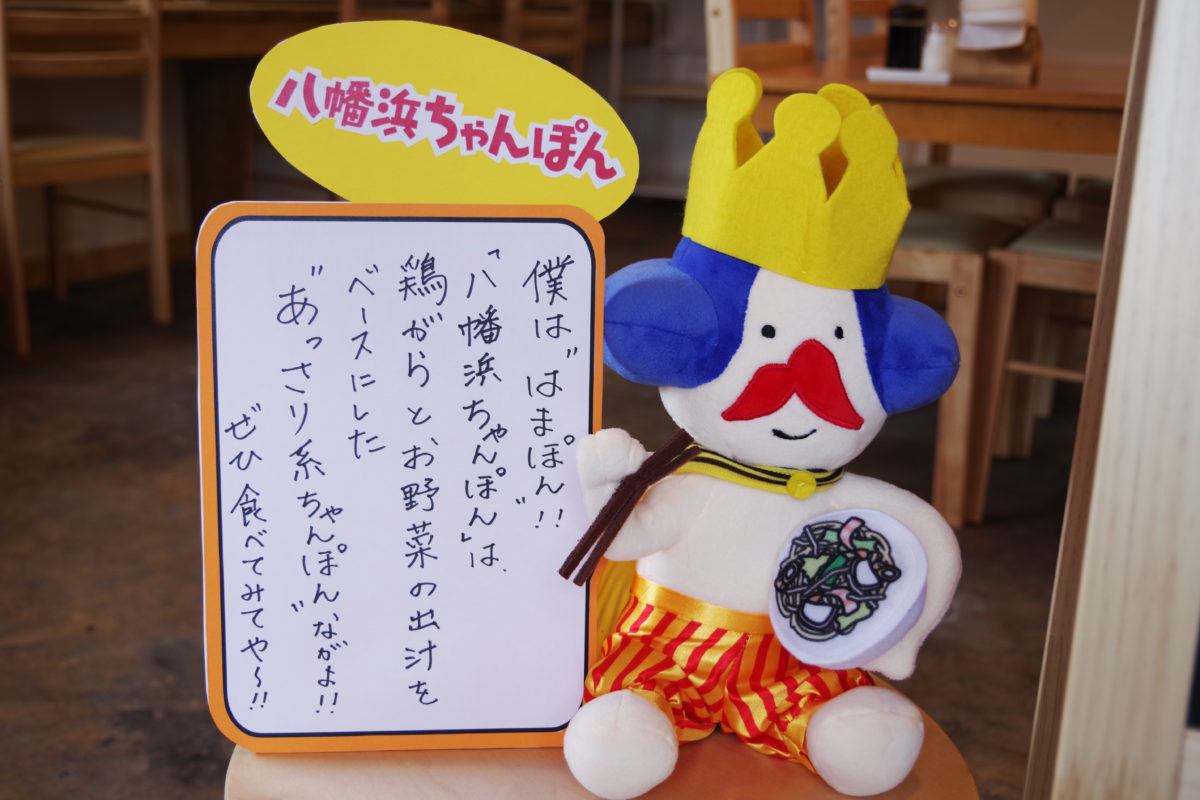 八幡浜ちゃんぽん
僕は"はまぽん"!!
「八幡浜ちゃんぽん」は、
鶏がらとお野菜の出汁を
ベースにした
"あっさり系ちゃんぽん"ながよ!!
ぜひ食べてみてや〜!!